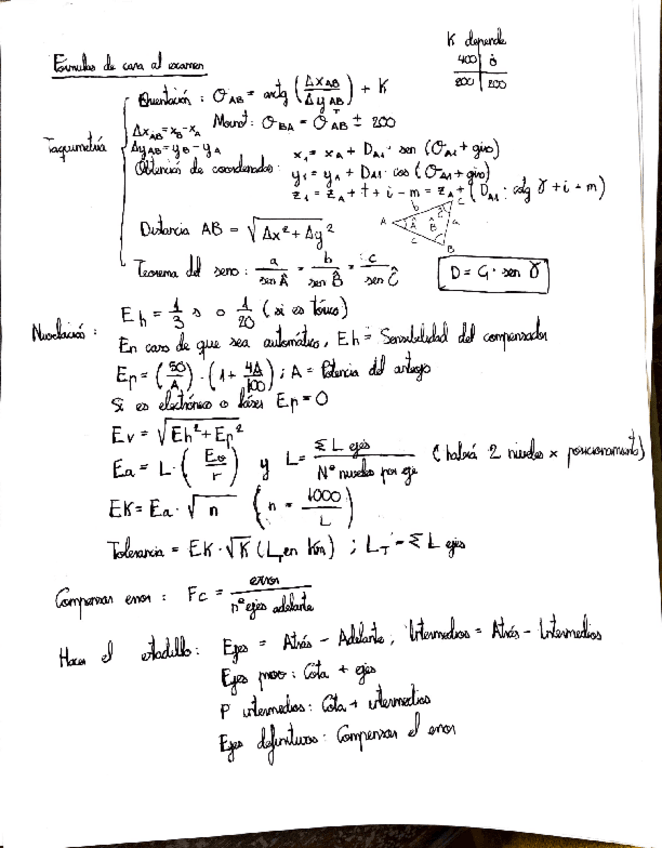 Fórmulas de cara al examen
K depende
400 | 0
200 | 200
Taquimetría
Orientación : θ AB = arctg (Δx AB / Δy AB) + K
Δx AB = x B - x A
Mount : θ BA = θ AB ± 200
Δy AB = y B - y A
Obtención de coordenadas : x₁ = x A + D A1 · sen (θ A1 + giro)
y₁ = y A + D A1 · cos (θ A1 + giro)
z₁ = z A + t + i - m = z A + (D A1 · cotg γ + i - m)
Distancia AB = √Δx² + Δy²
A b C a B c Â B̂ Ĉ
Teorema del seno : a / sen Â = b / sen B̂ = c / sen Ĉ
D = G · sen γ
Nivelación :
Eh = 1/3 s o 1/20 (si es tórico)
En caso de que sea automático, Eh = Sensibilidad del compensador
Ep = (50/A) · (1 + 4A/100) ; A = Potencia del anteojo
Si es electrónico o láser Ep = 0
Ev = √Eh² + Ep²
Ea = L · (Ev / r) y L = Σ L ejes / Nº niveles por eje (habrá 2 niveles x posicionamiento)
EK = Ea · √n (n = 1000 / L)
Tolerancia = EK · √K (L en Km) ; L T = Σ L ejes
Compensar error : Fc = error / nº ejes adelante
Hacer el estadillo : Ejes = Atrás - Adelante ; Intermedios = Atrás - Intermedios
Ejes prov : Cota + ejes
P intermedios : Cota + intermedios
Ejes definitivos : Compensar el error